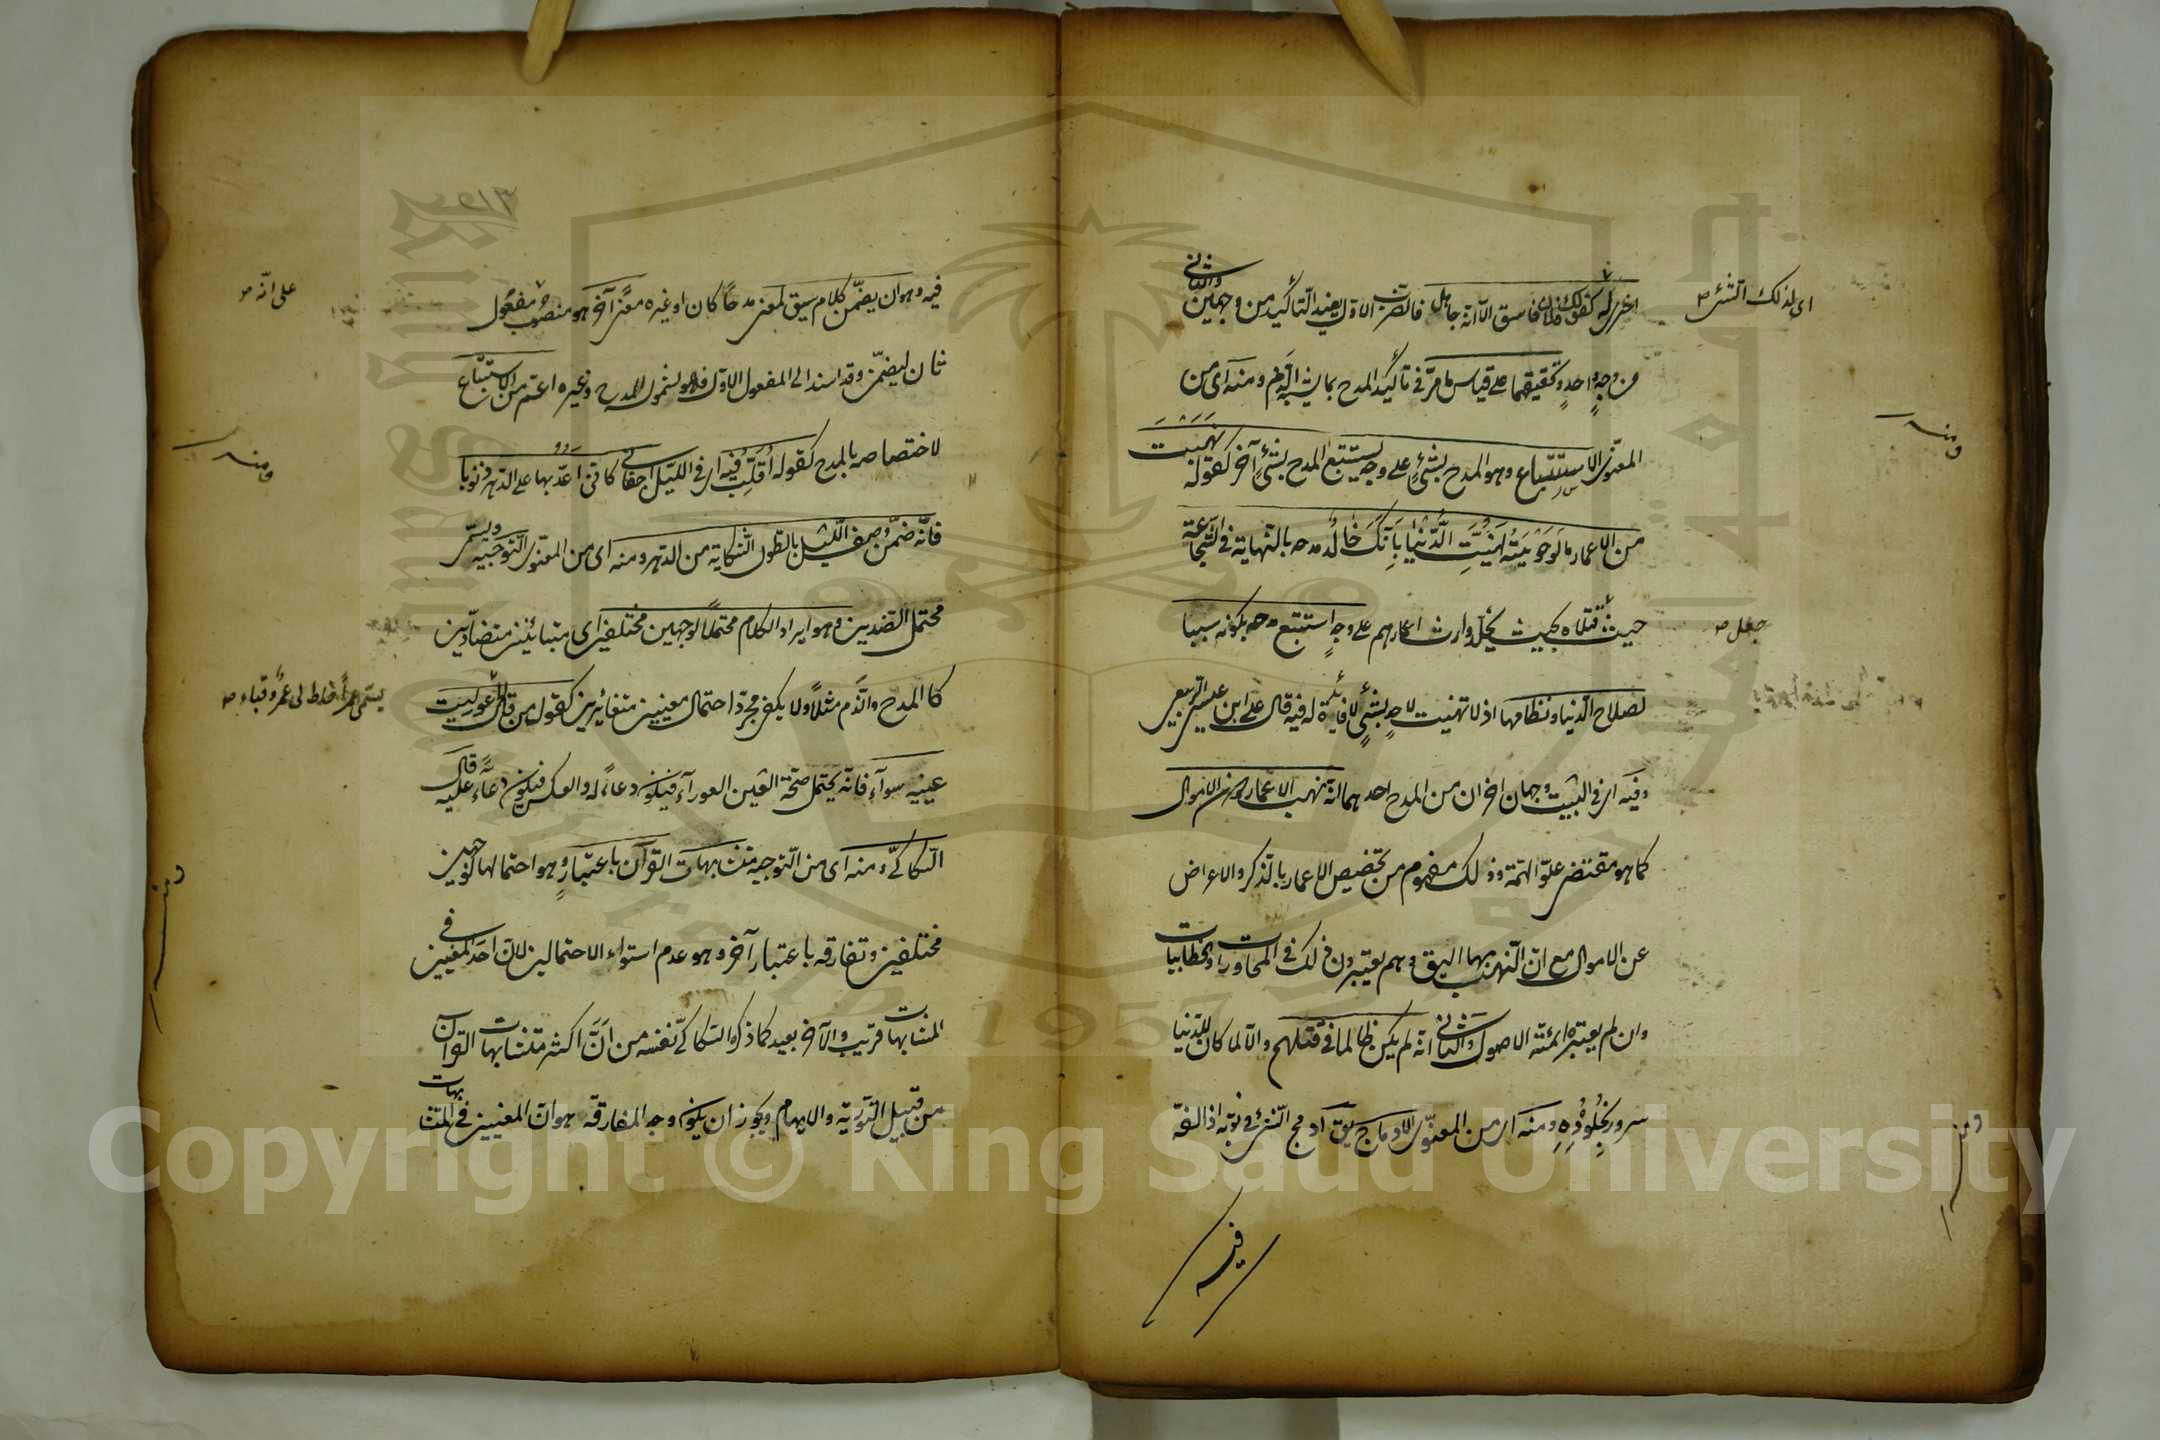 اخرى له كقولك فلان فاسق الا انه جاهل فالضرب الاول يفيد التأكيد من وجهين والثاني
اى لذلك الشئ صح
من وجهٍ واحدٍ وتحقيقهما على قياس ما مرّ في تأكيد المدح بما يشبه الذم ومنه اى من
المعنوى الاستتباع وهو المدح بشئٍ على وجهٍ يستتبع المدح بشئٍ آخر كقوله نهبت
ومنه
من الاعمار ما لو حويته لهنئت الدنيا بانك خالد مدحه بالنهاية في الشجاعة
حيث قتلاه بحيث يخلد وارث اعمارهم على وجهٍ استتبع مدحه بكونه سببا
جعل صح
لصلاح الدنيا ونظامها اذ لا تهنيت لاحدٍ بشئٍ لا فائدة له فيه قال على ابن عيسى الربعي
وفيه اى في البيت وجهان اخران من المدح احدهما انه نهب الاعمار دون الاموال
كما هو مقتضى علوّ الهمة وذلك مفهوم من تخصيص الاعمار بالذكر والاعراض
عن الاموال مع ان النهب بها اليق وهم يعتبرون ذلك في المحاورات والخطابيات
وان لم يعتبره ائمة الاصول والثاني انه لم يكن ظالما في قتلهم والا لما كان للدنيا
سرور بخلوده ومنه اى من المعنوى الادماج يق ادمج الشئ في ثوبه اذا لفه
فيه
فيه وهو ان يضمّن كلام سيق لمعنى مدحا كان او غيره معنًى آخر هو منصوب مفعول
على انه صح
ثان ليضمّن وقد اسند الى المفعول الاول فهو لشمول للمدح وغيره اعم من الاستتباع
لاختصاصه بالمدح كقوله أقلّب فيه اى في الليل اجفاني كاني اعدّ بها على الدهر ذنوبا
ومنه
فانه ضمّن وصف الليل بالطول الشكاية من الدهر ومنه اى من المعنوى التوجيه ويسمى
محتمل الضدين وهو ايراد الكلام محتملا لوجهين مختلفين اى متباينين متضادين
كالمدح والذم مثلا ولا يكفى مجرد احتمال معنيين متغايرين كقول من قال لاعور ليت
يسمى عمراً خاط لى عمرو قباء صح
عينيه سواء فانه يحتمل صحة العين العوراء فيكون دعاء له والعكس فيكون دعاء عليه قال
السكاكى ومنه اى من التوجيه متشابهات القرآن باعتبارٍ وهو احتمالها لوجهين
مختلفين وتفارقه باعتبار آخر وهو عدم استواء الاحتمالين لان احد المعنيين في
المتشابهات قريب والآخر بعيد كما ذكر السكاكى نفسه من ان اكثر متشابهات القرآن
من قبيل التورية والايهام ويجوز ان يكون وجه المفارقة هو ان المعنيين في المتشابهات
Copyright © King Saud University
1957